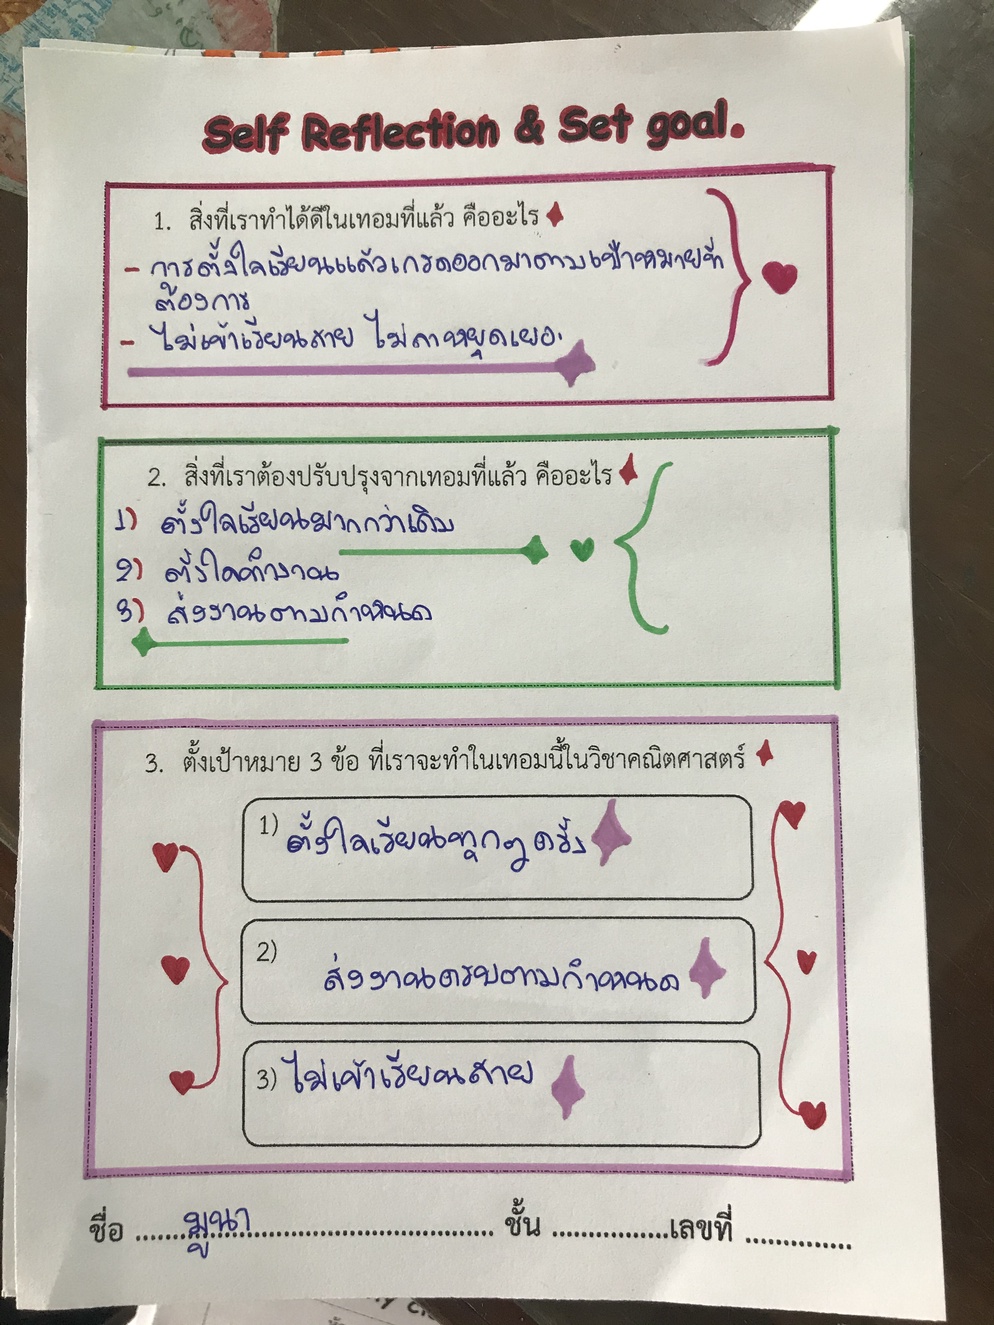 Self Reflection & Set goal.
1. สิ่งที่เราทำได้ดีในเทอมที่แล้ว คืออะไร
- การตั้งใจเรียนแล้วเกรดออกมาตามเป้าหมายที่
ต้องการ
- ไม่เข้าเรียนสาย ไม่ลาหยุดเยอะ
2. สิ่งที่เราต้องปรับปรุงจากเทอมที่แล้ว คืออะไร
1) ตั้งใจเรียนมากกว่าเดิม
2) ตั้งใจทำงาน
3) ส่งงานตามกำหนด
3. ตั้งเป้าหมาย 3 ข้อ ที่เราจะทำในเทอมนี้ในวิชาคณิตศาสตร์
1) ตั้งใจเรียนทุกๆครั้ง
2) ส่งงานครบตามกำหนด
3) ไม่เข้าเรียนสาย
ชื่อ .....มูนา.............................. ชั้น ................เลขที่ ..............